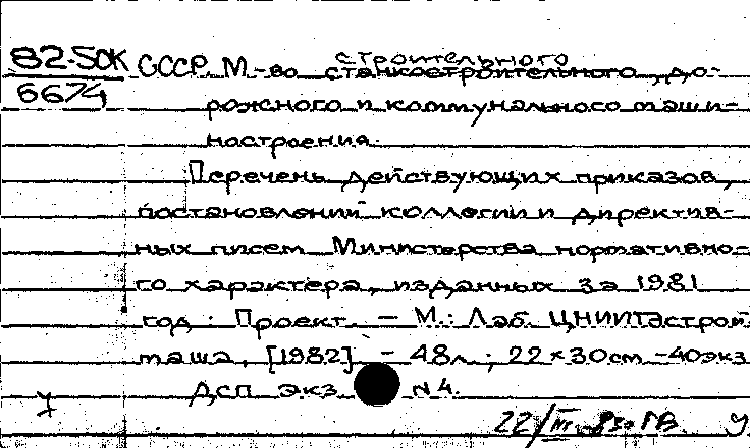 82-5ОК
6674
СССР. М-во строительного
станкостроительного, до-
рожного и коммунального маши-
ностроения.
Перечень действующих приказов,
постановлений коллегии и директив-
ных писем Министерства нормативно-
го характера, изданных за 1981
год. Проект. — М.: Лаб. ЦНИИТЭстрой
маша, [1982] - 48л.; 22×30см -40экз
ДСП экз N4.
22/III